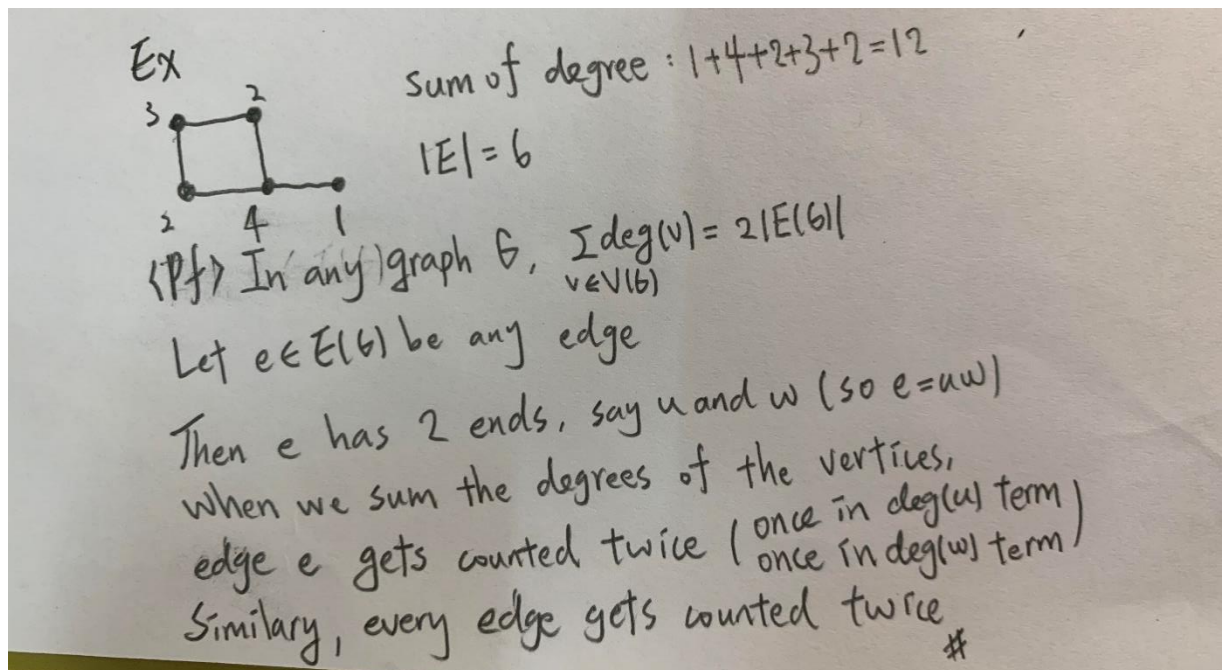 Ex
sum of degree : 1+4+2+3+2=12
3 2
|E| = 6
2 4 1
<Pf> In any graph G, Σdeg(v) = 2|E(G)|
v∈V(G)
Let e∈E(G) be any edge
Then e has 2 ends, say u and w (so e=uw)
when we sum the degrees of the vertices,
edge e gets counted twice (once in deg(u) term
once in deg(w) term)
Similary, every edge gets counted twice
#